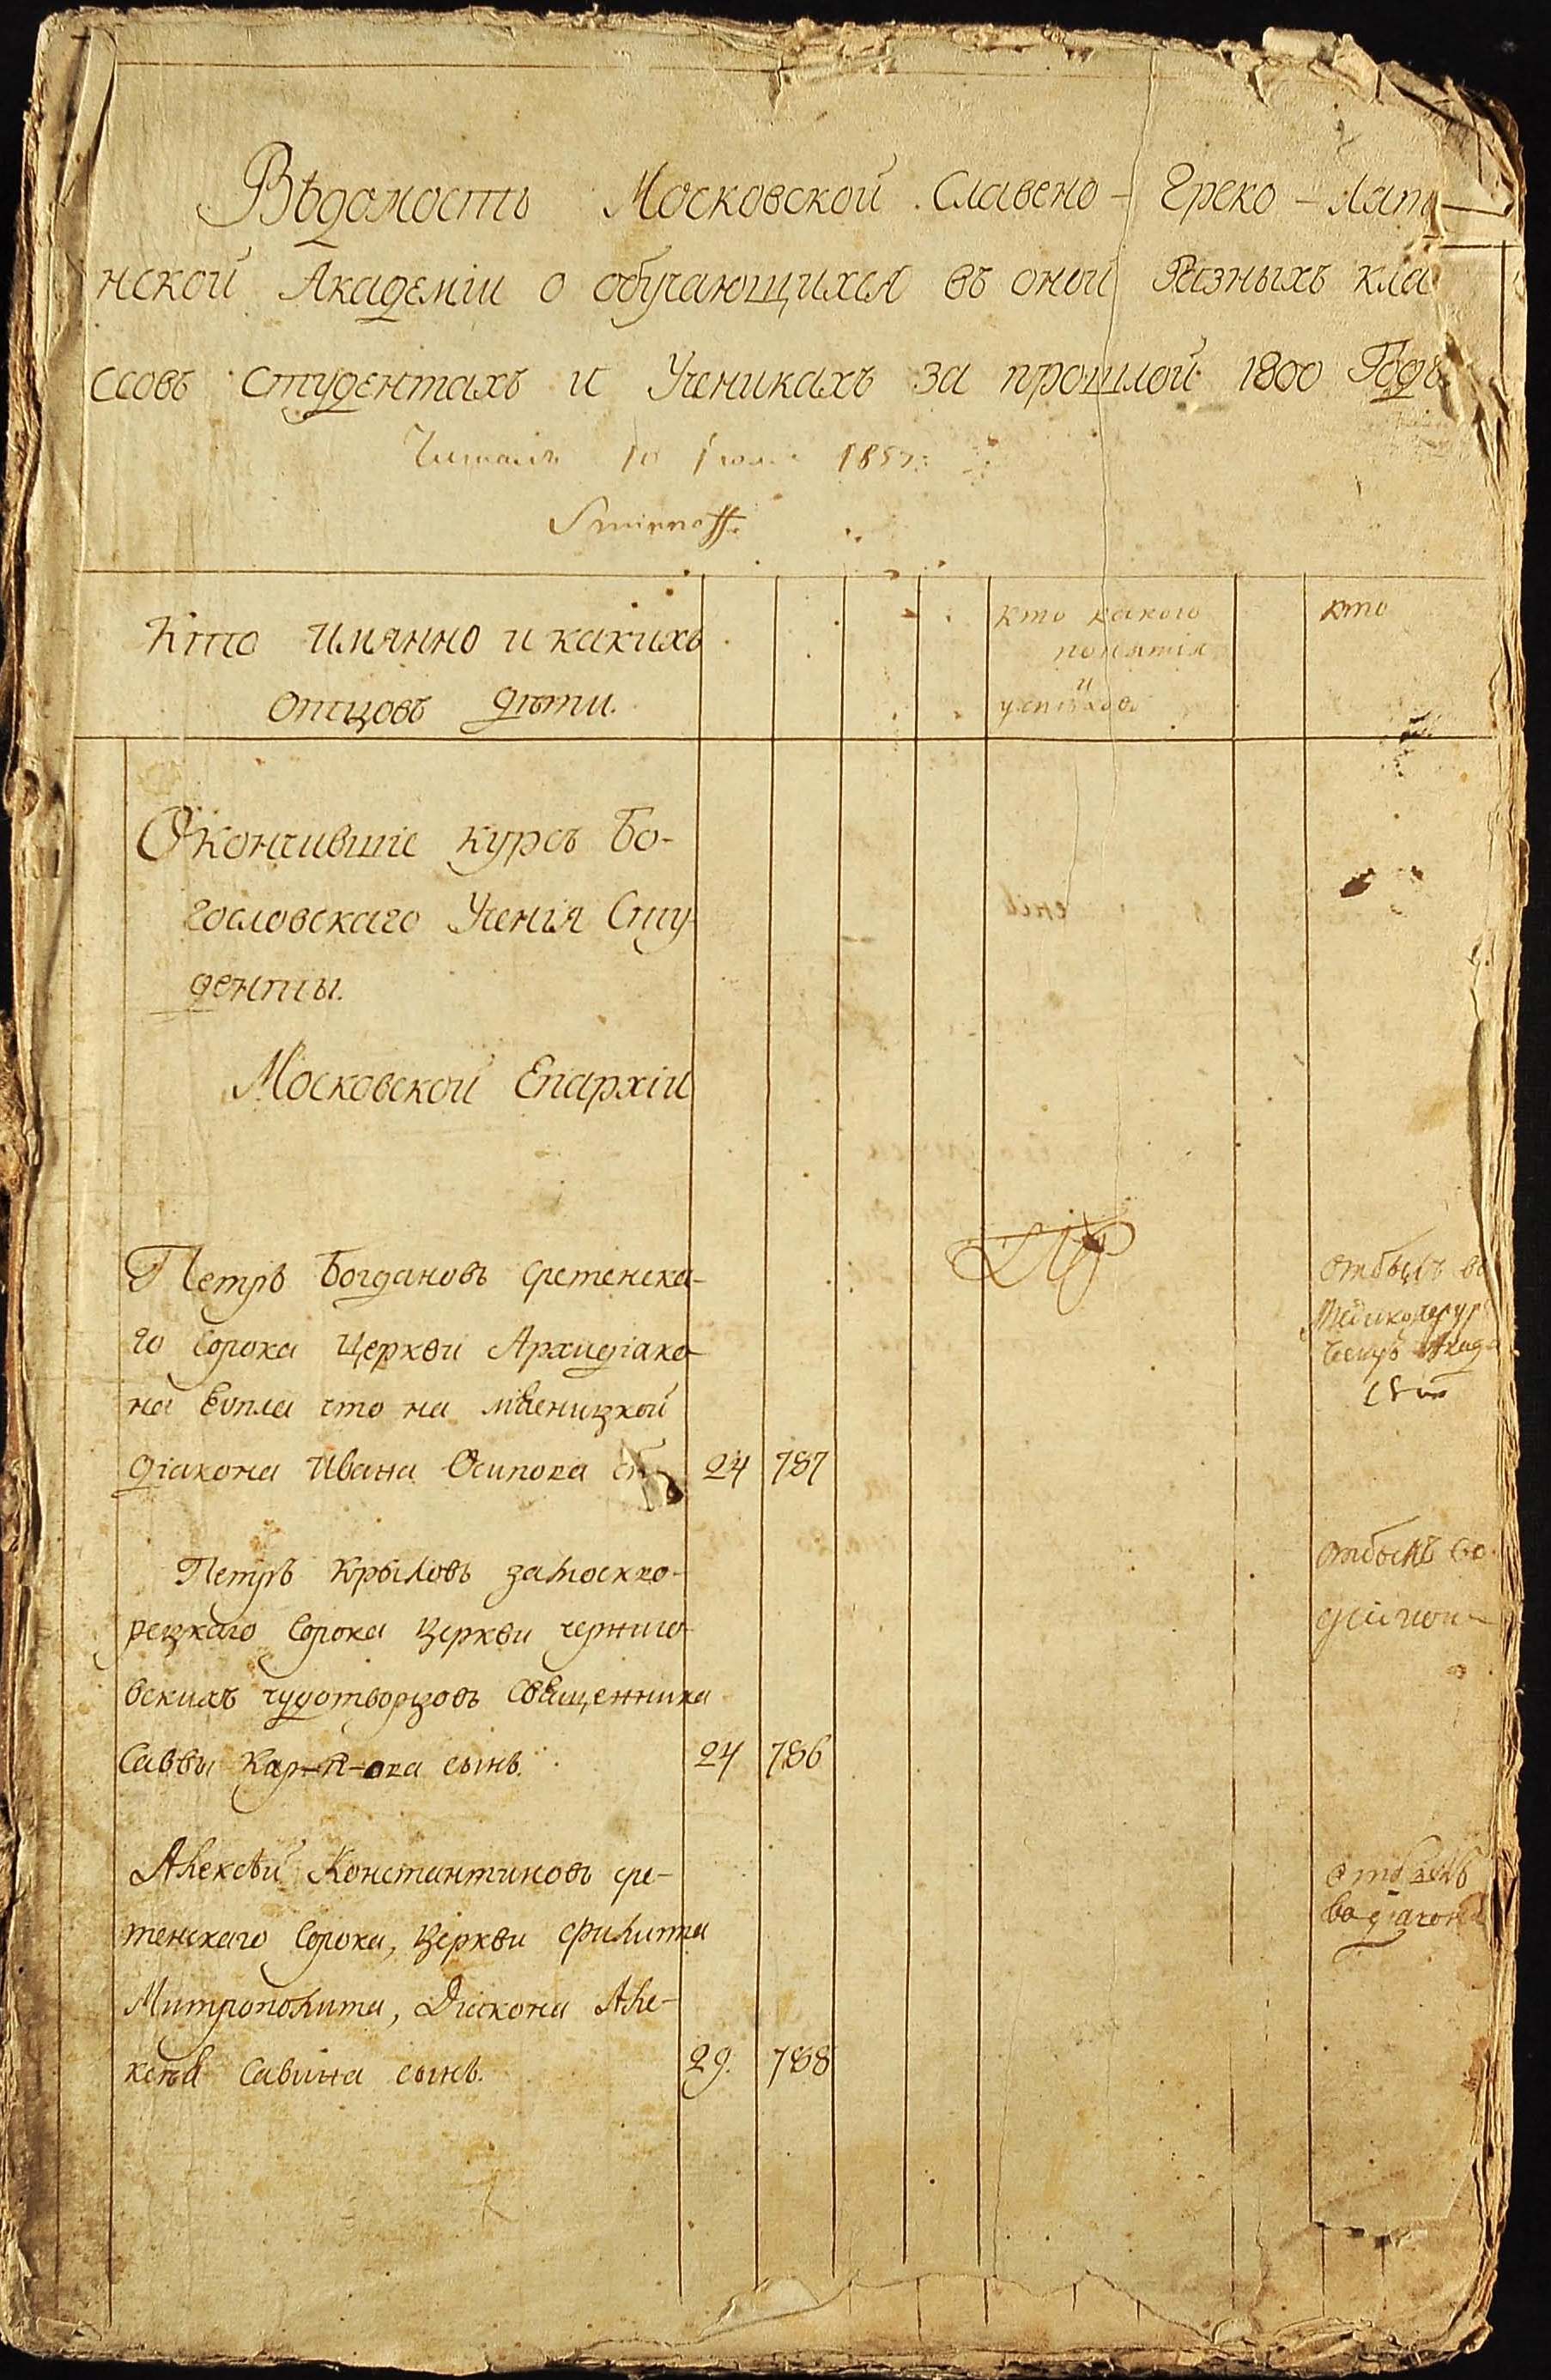 Вѣдомость Московской Славено - Греко - Лати
нской Академіи о обучающихся въ оной разныхъ кла
ссовъ студентахъ и Ученикахъ за прошлой 1800 Годъ
Читалъ 10 1857
Smirnoff.
Кто имянно и какихъ
отцовъ дѣти.
кто какого
понятія
и
успѣховъ
кто
Окончившіе курсъ Бо-
гословскаго Ученія Сту-
денты.
Московской Епархіи
Петръ Богдановъ сретенска-
го сорока Церкви Архидіако-
на Евпла что на мясницкой
діакона Ивана Осипова 24 787
отбылъ во
Медикохирур
Акад
Петръ Крыловъ замоскво-
рецкаго сорока Церкви черниго-
вскихъ чудотворцовъ священника
Саввы Карпова сынъ. 24 786
отбылъ во
Алексѣй Константиновъ сре-
тенскаго сорока, Церкви Филипа
Митрополита, Діакона Але-
ксѣя Савина сынъ. 29. 788
отбылъ
во діакона